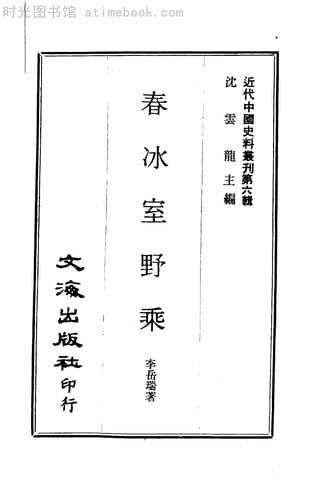 时光图书馆 atimebook.com
近代中國史料叢刊第六輯
沈雲龍主編
春冰室野乘
李岳瑞著
文海出版社印行